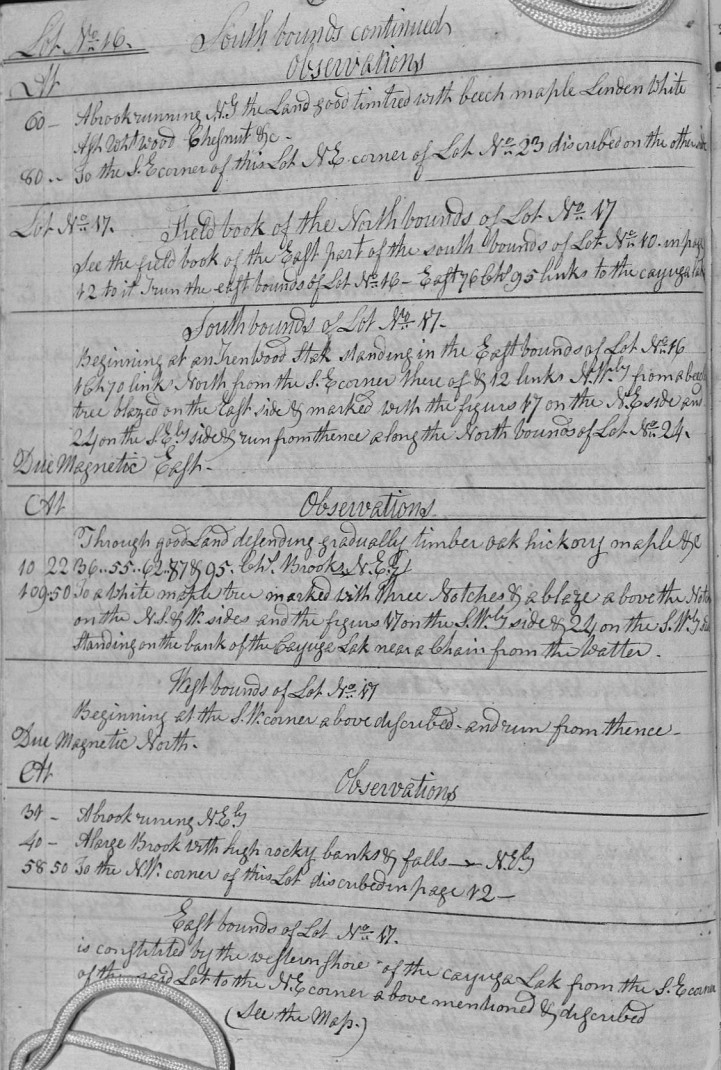 Lot No. 16. South bounds continued
At Observations
60 – A brook running N.Ey the Land good timbred with beech maple Linden White
Ash Whitwood Chesnut &c -
80 .. To the S.E corner of this Lot N.E. corner of Lot No. 23 discribed on the other side
Lot No. 17. Field book of the North bounds of Lot No 17
See the field book of the East part of the south bounds of Lot No. 10. in page
12 to it I run the east bounds of Lot No. 16 – East 76 Chs. 95 links to the cayuga Lak
South bounds of Lot No 17.
Beginning at an Irenwood Stak standing in the East bounds of Lot No. 16
1 Ch 70 links North from the S.E corner there of & 12 links N.Wly from a beech
tree blazed on the East side & marked with the figurs 17 on the N.E side and
24 on the S.Ely side & run from thence along the North bounds of Lot No. 24.
Due Magnetic East.
At Observations
Through good Land desending gradually timber oak hickory maple &c
10 22 36 .. 55 .. 62 .. 87 & 95. Chs. Brooks N.Ely
109 50 To a White maple tree marked with three Notches & a blaze above the Notches
on the N.S. & W. sides and the figurs 17 on the S.Wly side & 24 on the S.Wly side
standing on the bank of the Cayuga Lak near a Chain from the Watter.
West bounds of Lot No 17
Beginning at the S.W. corner above discribed. and run from thence –
Due Magnetic North.
At Observations
31 – A brook runing N.Ely
40 – A large Brook with high rocky banks & falls — N.Ely
58 50 To the N.W. corner of this Lot discribed in page 12 –
East bounds of Lot No. 17.
is constituted by the western shore of the cayuga Lak from the S.E corner
of the said Lot to the N.E corner above mentioned & discribed
(See the Map.)